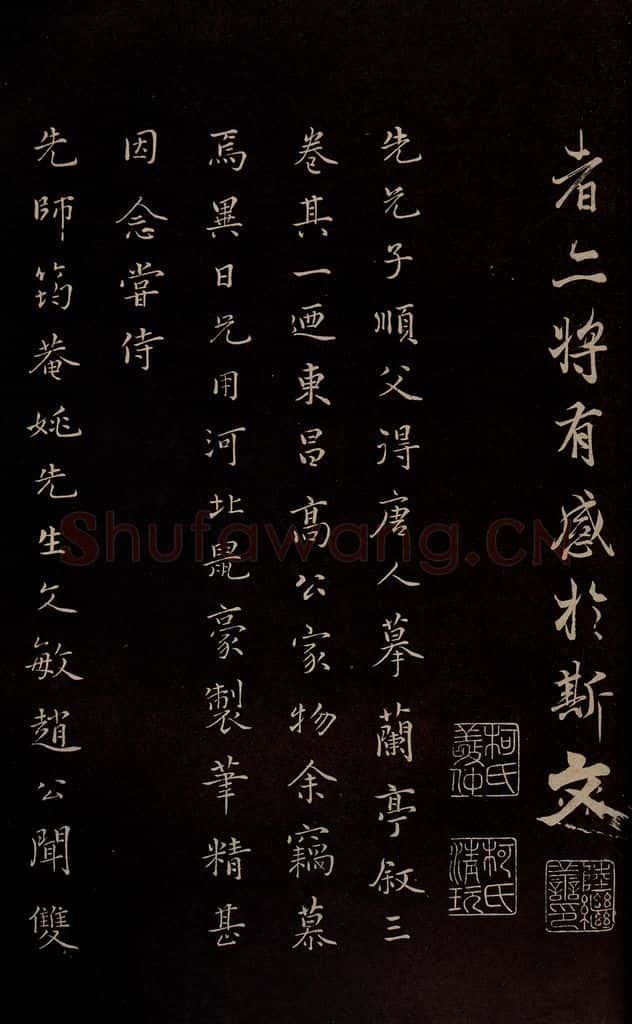 者亦將有感於斯文
陸繼善印
柯氏敬仲
柯氏清玩
先兄子順父得唐人摹蘭亭叙三
卷其一迺東昌高公家物余竊慕
焉異日兄用河北鼠豪製筆精甚
因念甞侍
先師筠菴姚先生文敏趙公聞雙
Shufawang.CN